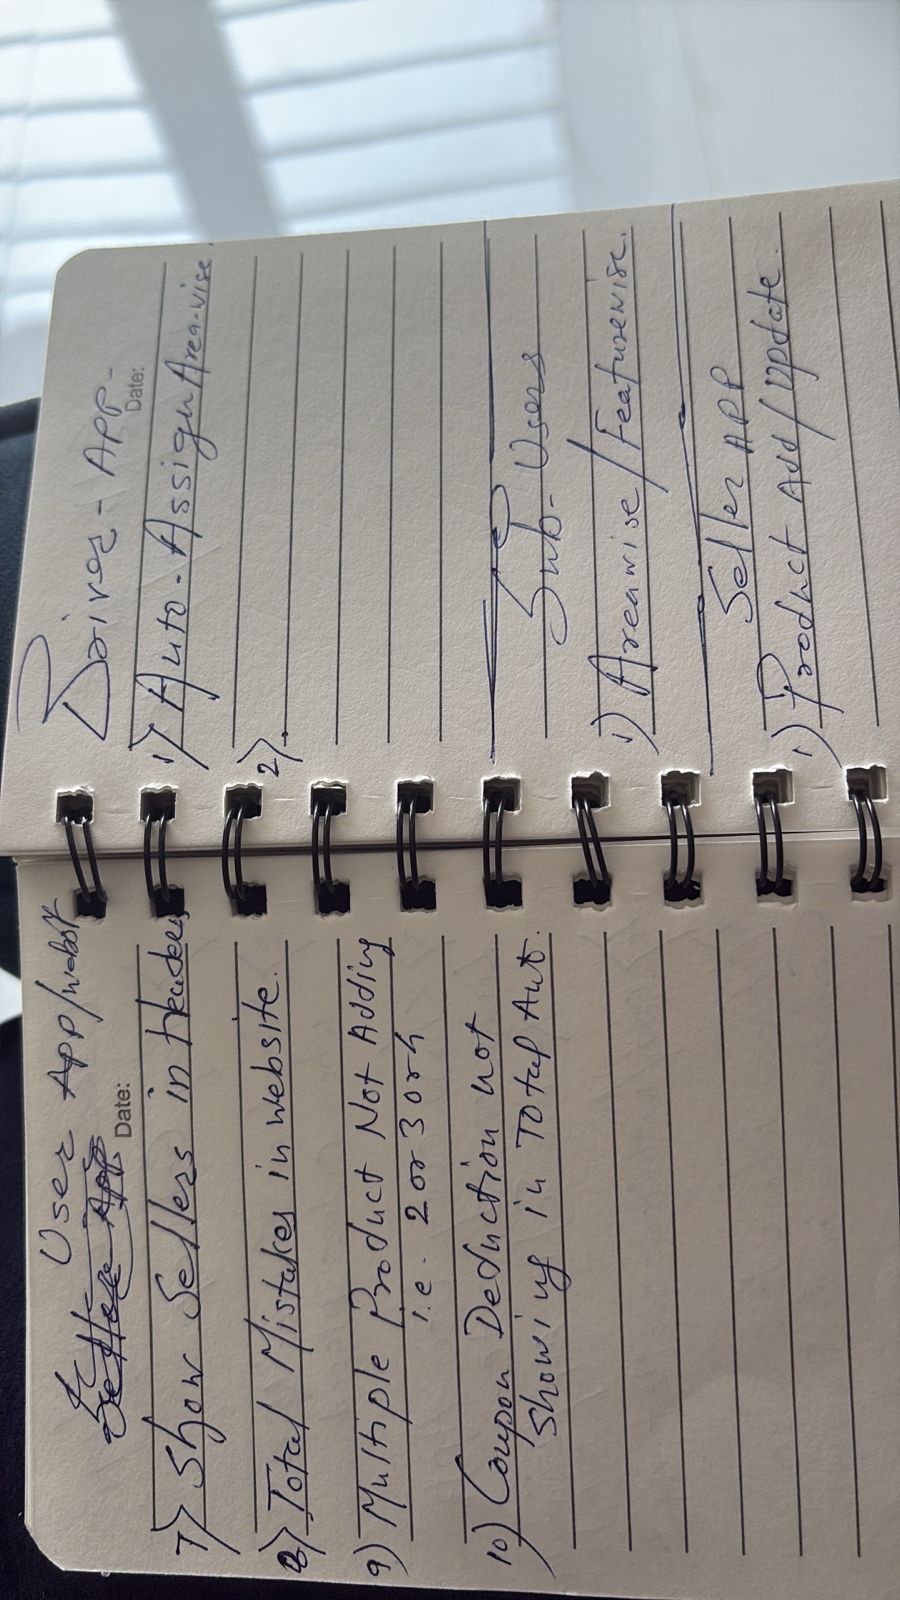 User App/
Date:
7) Show Sellers in header
8) Total Mistakes in website.
9) Multiple Product Not Adding
i.e. 2 or 3 or 4
10) Coupon Deduction not
Showing in Total Amt.
Driver-APP-
Date:
1) Auto-Assign Area-wise.
2)
Sub-Users
1) Areawise/Featurewise.
Seller APP
1) Product Add/Update.